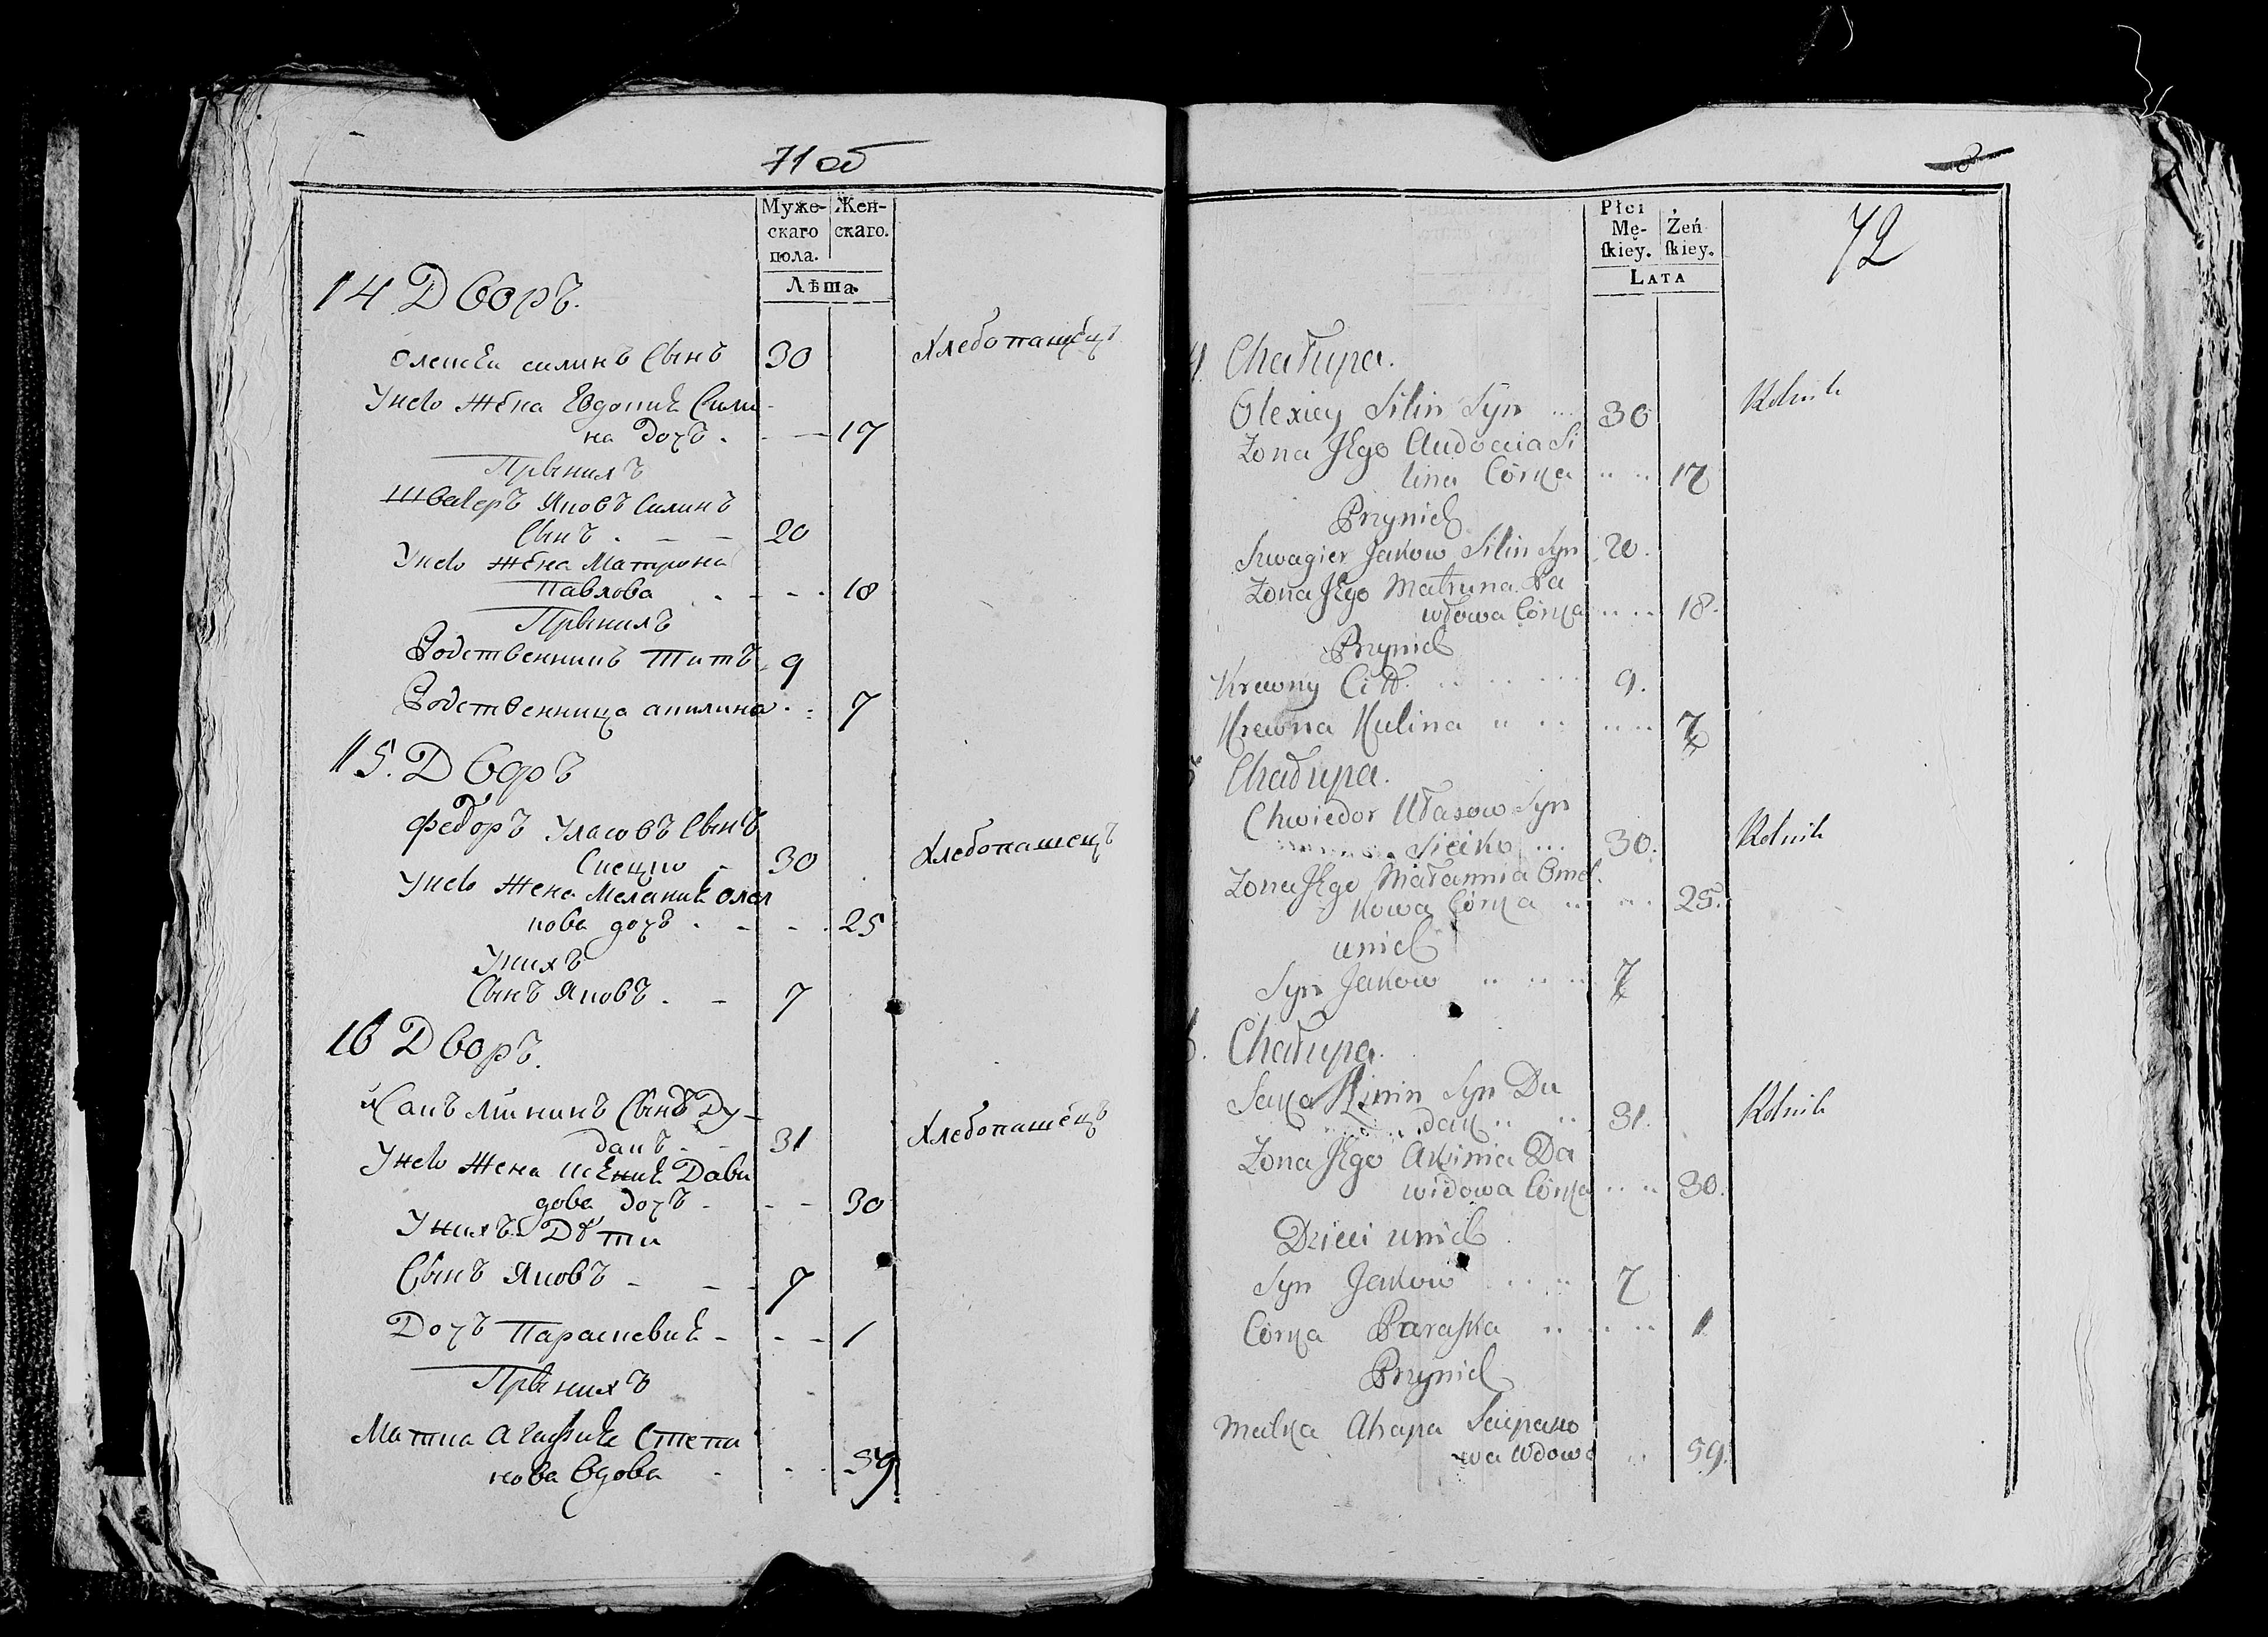 71 об
Муже-
скаго
пола.
Жен-
скаго.
Лѣта.
14 Дворъ.
Олексѣй силинъ Сынъ 30 Хлебопашецъ
Унево Жена Евдокиѣ Сили
на дочъ. 17
Прынихъ
Швакеръ Яковъ Силинъ
Сынъ. 20
Унево жена Матрона
Павлова 18
Прынихъ
Родственникъ Титъ 9
Родственница акилина 7
15. Дворъ
Федоръ Уласовъ Сынъ
30 Хлебопашецъ
Унево Жена Меланиѣ Омел
кова дочъ. 25
Унихъ
Сынъ Яковъ. 7
16 Дворъ.
Минини Сынъ Ду-
дакъ 31 Хлебопашецъ
Унево Жена Дави
дова дочъ 30
Унихъ Дѣти
Сынъ Яковъ 7
Дочъ Параскевиѣ 1
Прынихъ
Матка Агафиѣ Степа
нова Вдова 59
Płci
Mę-
skiey.
Żeń
skiey.
LATA
72
Chałupa.
Olexiey Silin Syn 30 Rolnik
Zona Jego Audocia Si
lina Córka 17
Przynich
Szwagier Jakow Silin Syn 20.
Zona Jego Matruna Pa
włowa Córka 18.
Przynich
Krewny Citt. 9.
Krewna Kulina 7
Chałupa.
Chwiedor Ułasow Syn
30. Rolnik
Zona Jego Małannia Omel.
kowa Córka 25.
unich
Syn Jakow 7
Chałupa.
Saka Minin Syn Du
dak 31. Rolnik
Zona Jego Axinia Da
widowa Córka 30.
Dzieci unich
Syn Jakow 7
Córka Paraska 1
Przynich
Matka Ahapa Sciepano
wa Wdowa 59.